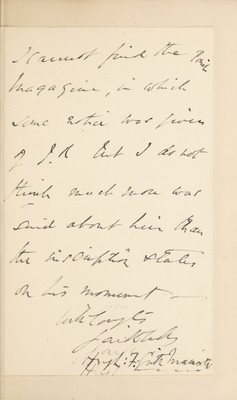 I cannot find the
Magazine, in which
some notice was given
of J.R but I do not
think much more was
said about him than
the inscription states
on his monument —